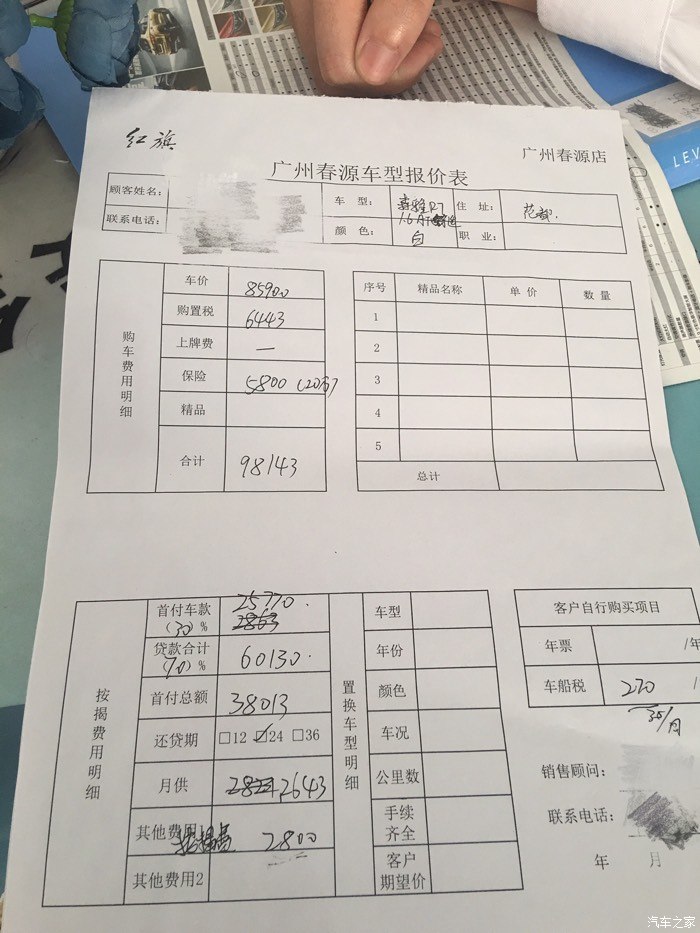 红旗
广州春源店
广州春源车型报价表
顾客姓名：
车 型：
1.6
住 址：
花都.
联系电话：
颜 色：
白
职 业：
购车费用明细
车价 85900
购置税 6443
上牌费 —
保险 5800 (20万)
精品
合计 98143
序号 精品名称 单 价 数 量
1
2
3
4
5
总计
按揭费用明细
首付车款 25770.
(30) %
贷款合计 60130.
(70) %
首付总额 38013
还贷期 □12 ☑24 □36
月供 2643
其他费用1 2800
其他费用2
置换车型明细
车型
年份
颜色
车况
公里数
手续
齐全
客户
期望价
客户自行购买项目
年票 /年
车船税 270 /
35/月
销售顾问：
联系电话：
年 月
LEV
汽车之家